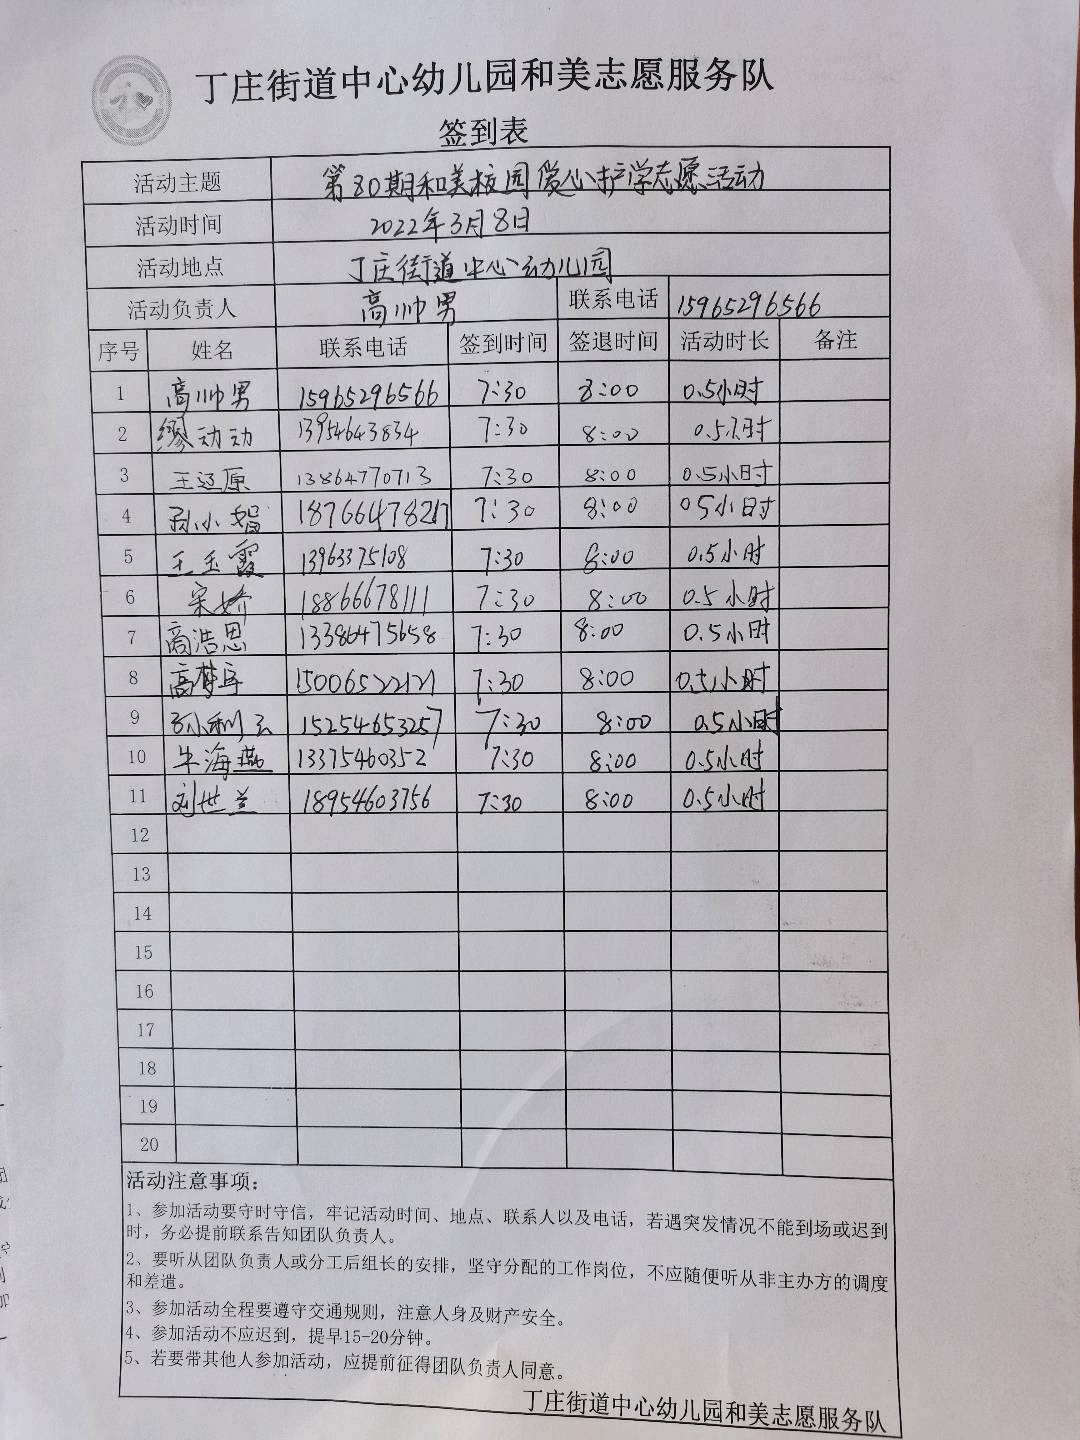 丁庄街道中心幼儿园和美志愿服务队
签到表
活动主题 第80期和美校园爱心护学志愿活动
活动时间 2022年3月8日
活动地点 丁庄街道中心幼儿园
活动负责人 高帅男 联系电话 15965296566
序号 姓名 联系电话 签到时间 签退时间 活动时长 备注
1 高帅男 15965296566 7:30 8:00 0.5小时
2 缪动动 13954643834 7:30 8:00 0.5小时
3 王辽原 13864770713 7:30 8:00 0.5小时
4 孙小娟 18766478217 7:30 8:00 0.5小时
5 王玉霞 13963375108 7:30 8:00 0.5小时
6 宋娇 18866678111 7:30 8:00 0.5小时
7 商浩思 13386475658 7:30 8:00 0.5小时
8 高梦宇 15006522121 7:30 8:00 0.5小时
9 孙利云 15254653257 7:30 8:00 0.5小时
10 牛海燕 13375460352 7:30 8:00 0.5小时
11 刘世兰 18954603756 7:30 8:00 0.5小时
12
13
14
15
16
17
18
19
20
活动注意事项：
1、参加活动要守时守信，牢记活动时间、地点、联系人以及电话，若遇突发情况不能到场或迟到
时，务必提前联系告知团队负责人。
2、要听从团队负责人或分工后组长的安排，坚守分配的工作岗位，不应随便听从非主办方的调度
和差遣。
3、参加活动全程要遵守交通规则，注意人身及财产安全。
4、参加活动不应迟到，提早15-20分钟。
5、若要带其他人参加活动，应提前征得团队负责人同意。
丁庄街道中心幼儿园和美志愿服务队